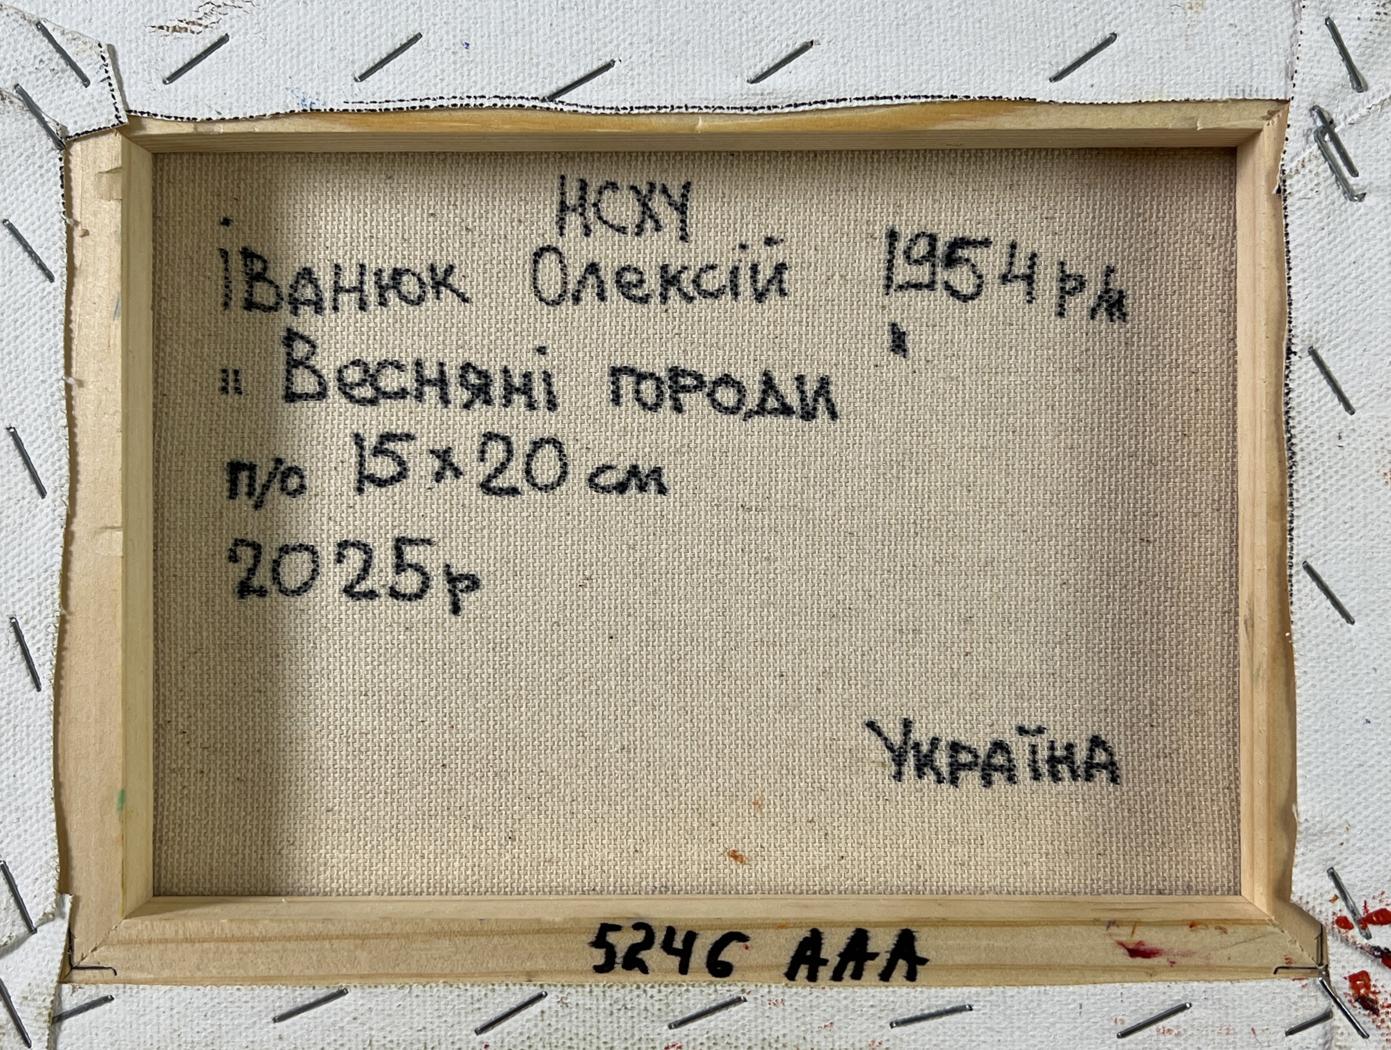 НСХУ
ІВАНЮК Олексій 1954 р/н
" Весняні городи "
п/о 15х20 см
2025р
УКРАЇНА
5246 ААА